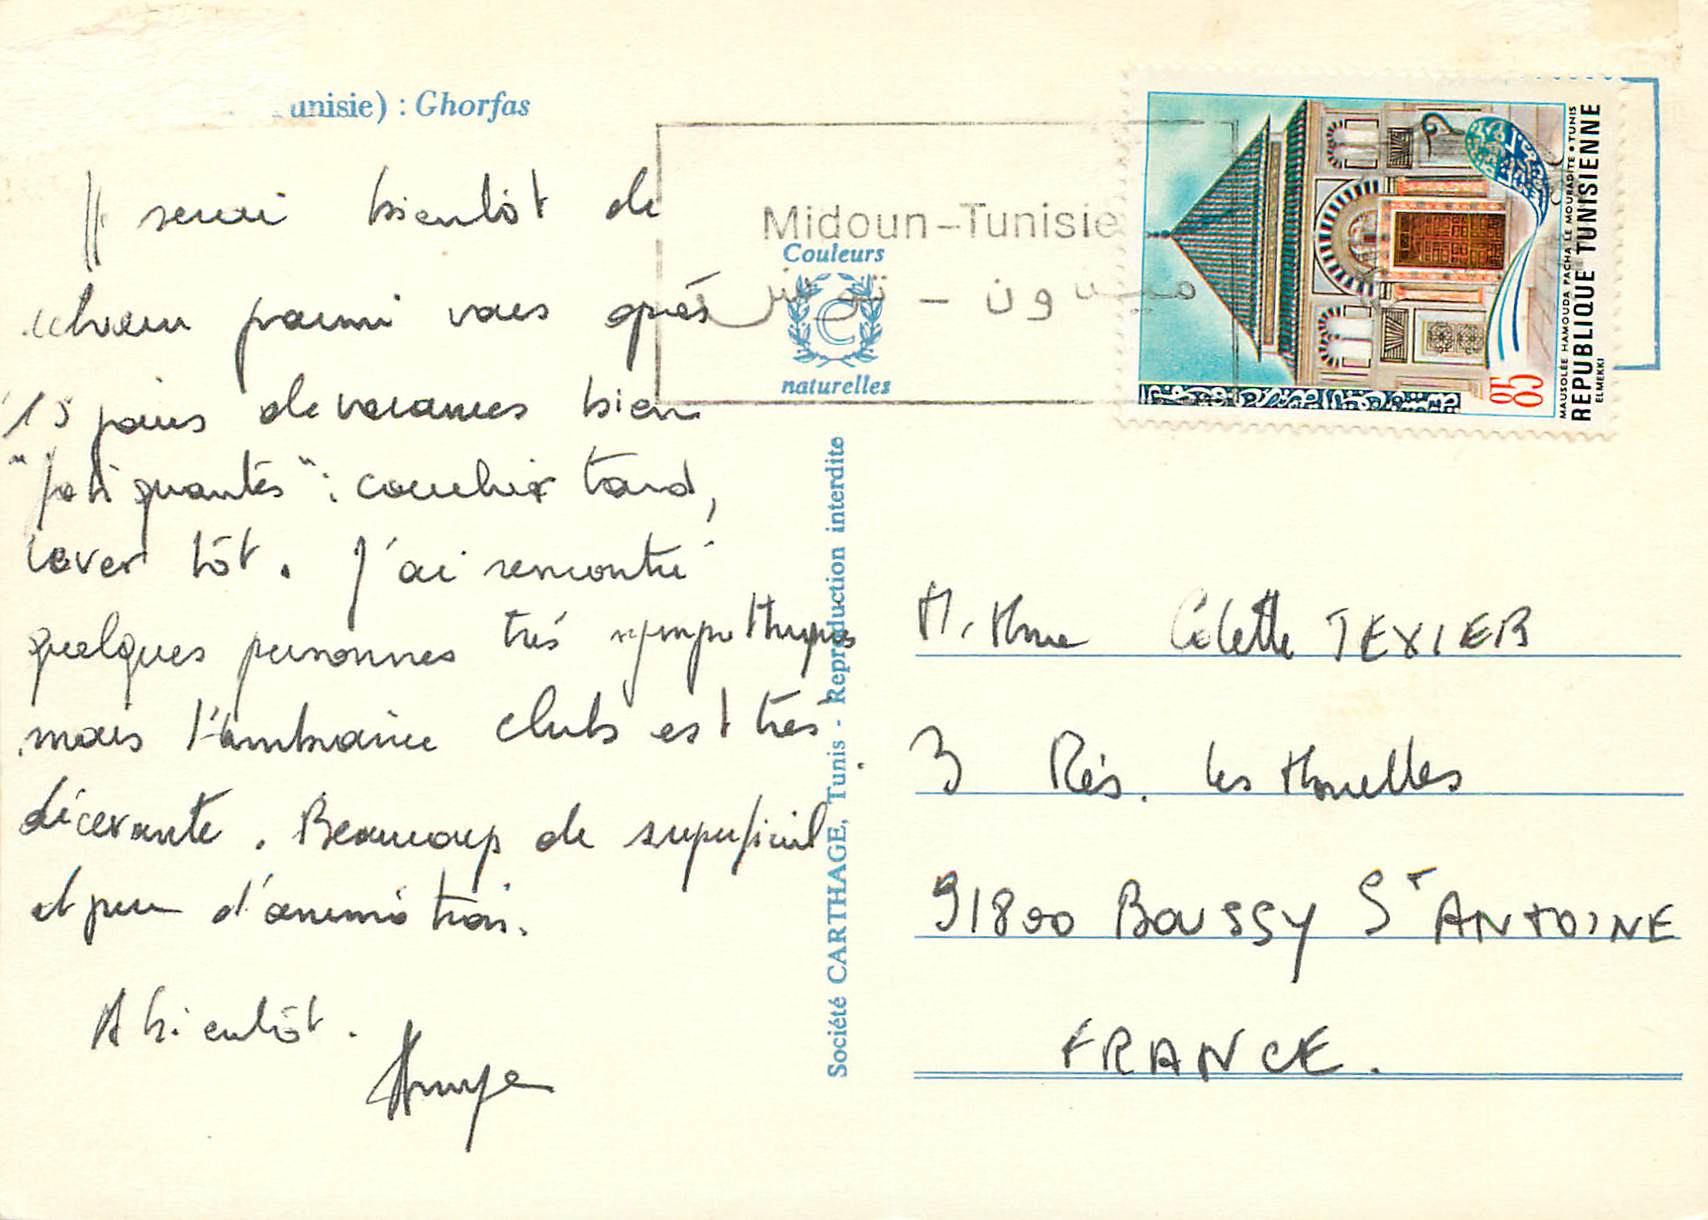 unisie) : Ghorfas
Je serai bientôt de
retour parmi vous après
15 jours de vacances bien
"fatiguantes" : coucher tard,
lever tôt. J'ai rencontré
quelques personnes très sympathiques
mais l'ambiance club est très
décevante. Beaucoup de superficiel
et peu d'animation.
A bientôt.
Midoun-Tunisie
ميدون - تونس
Couleurs
C
naturelles
Société CARTHAGE, Tunis - Reproduction interdite
85
MAUSOLÉE HAMOUDA PACHA LE MOURADITE • TUNIS
REPUBLIQUE TUNISIENNE
ELMEKKI
M. Mme Colette TEXIER
3 Rés. les
91800 BOUSSY St ANTOINE
FRANCE.